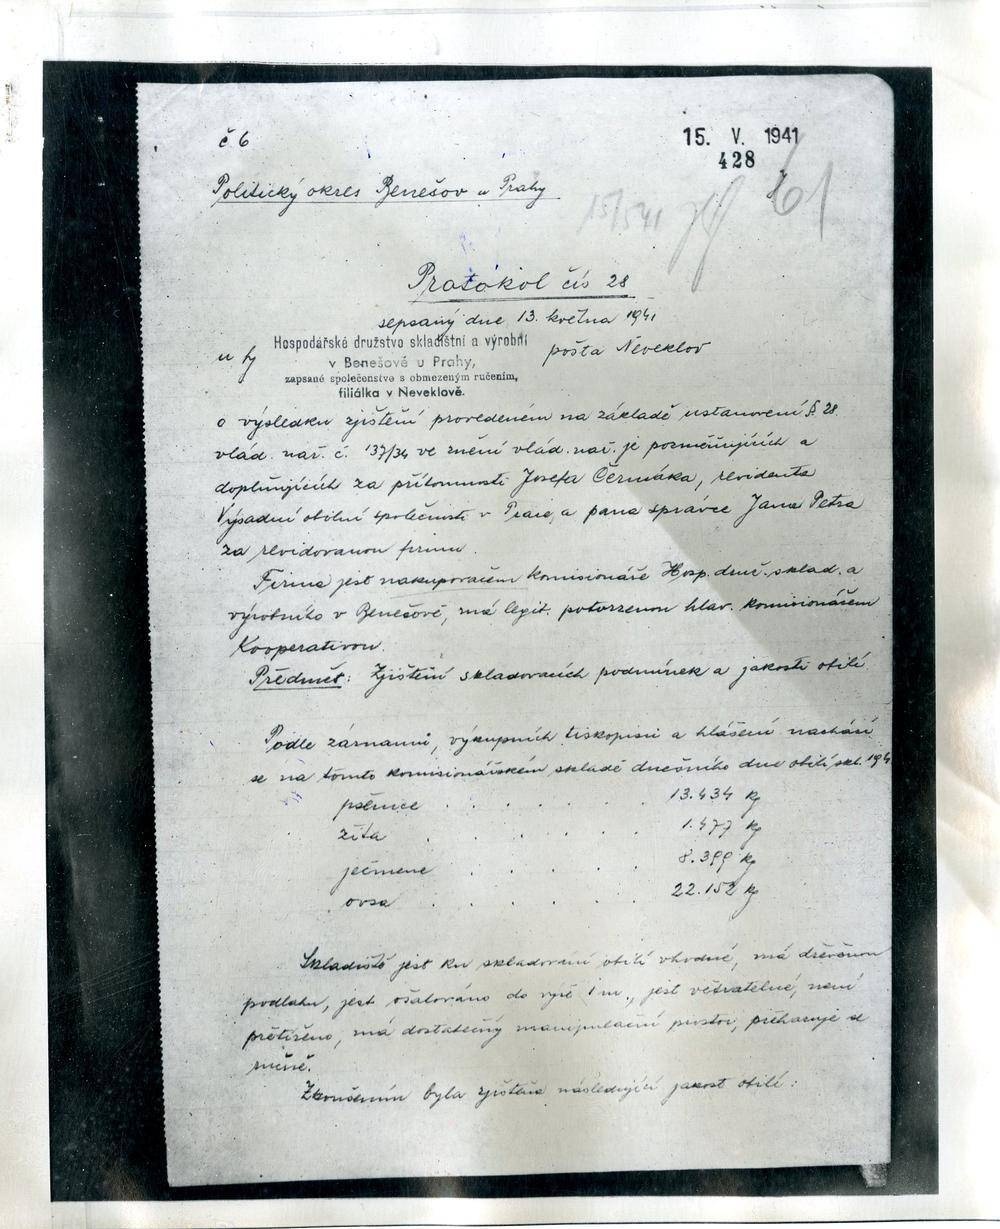 č 6
15. V. 1941
428
Politický okres Benešov u Prahy
15/5 41
61
Protokol čís 28
sepsaný dne 13. května 1941
u fy Hospodářské družstvo skladištní a výrobní
v Benešově u Prahy,
zapsané společenstvo s obmezeným ručením,
filiálka v Neveklově.
pošta Neveklov
o výsledku zjištění provedeném na základě ustanovení §. 28.
vlád. nař. č. 137/34 ve znění vlád. nař. je pozměňujících a
doplňujících za přítomnosti Josefa Čermáka, revidenta
Výsadní obilní společnosti v Praze, a pana správce Jana Petra
za revidovanou firmu.
Firma jest nakupovačem komisionáře Hosp. druž. sklad. a
výrobního v Benešově, má legit. potvrzenou hlav. komisionářem
Kooperativou.
Předmět: Zjištění skladovacích podmínek a jakosti obilí
Podle záznamů, výkupních tiskopisů a hlášení nachází
se na tomto komisionářském skladě dnešního dne obilí skl. 194
pšenice . . . . . 13.434 kg
žita . . . . . 1.477 kg
ječmene . . . . 8.399 kg
ovsa . . . . . 22.152 kg
Skladiště jest ku skladování obilí vhodné, má dřevěnou
podlahu, jest ošalováno do výše 1 m., jest větratelné, není
přetíženo, má dostatečný manipulační prostor, přehazuje se
ručně.
Zkoušením byla zjištěna následující jakost obilí: